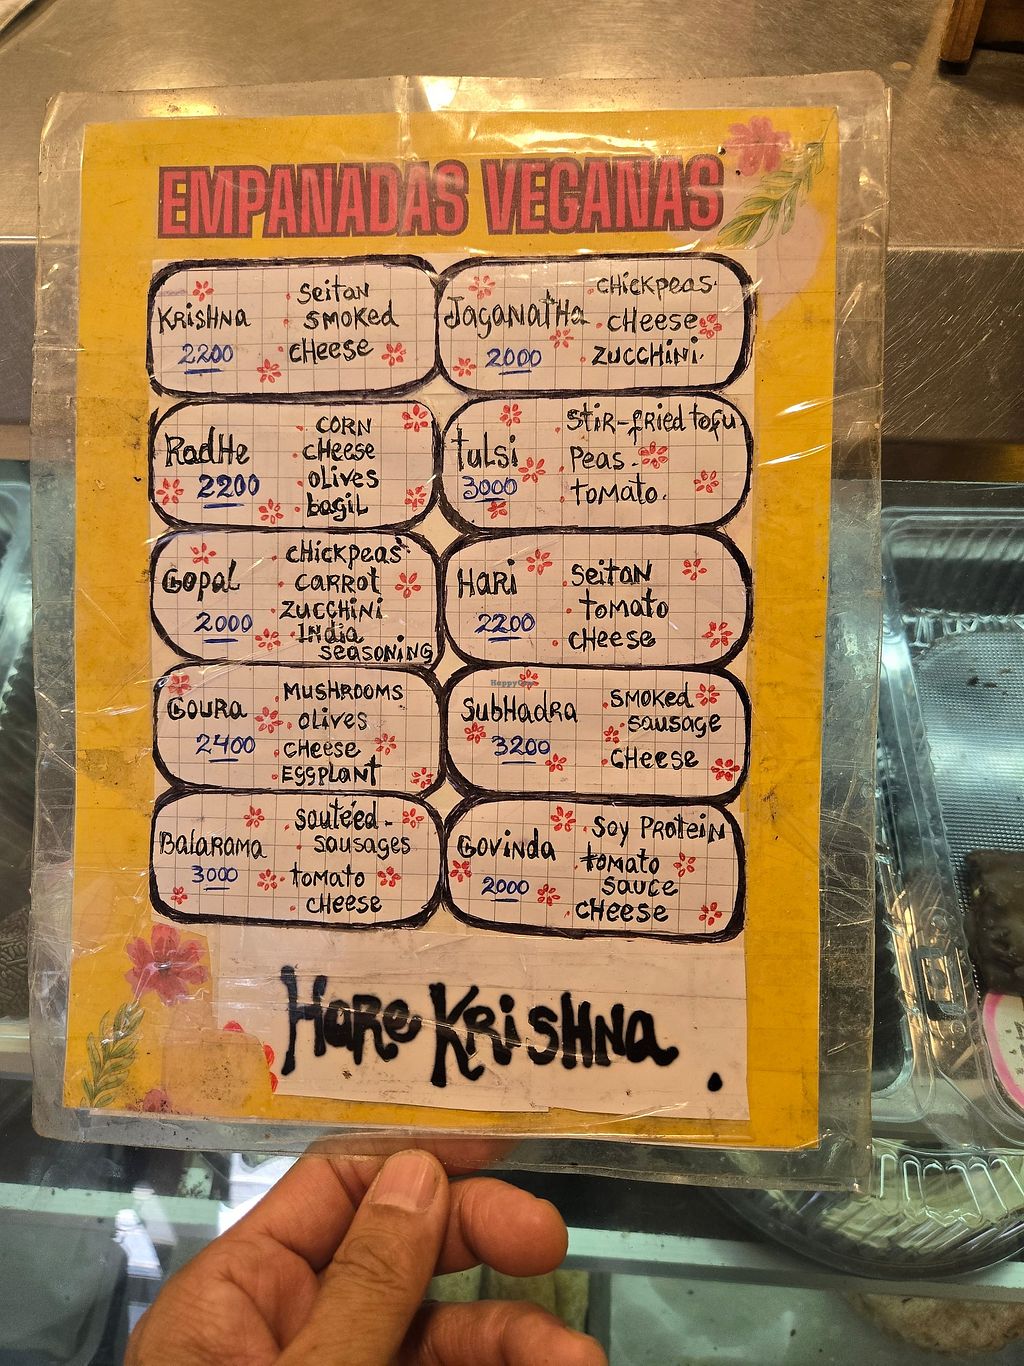 EMPANADAS VEGANAS
Krishna
2200
. Seitan
. smoked
. cheese
Jaganatha
2000
. chickpeas.
. cheese
. zucchini.
Radhe
2200
. corn
. cheese
. olives
. bagil
Tulsi
3000
. Stir-fried tofu.
. Peas.
. tomato.
Gopal
2000
. chickpeas
. carrot
. zucchini
. India
seasoning
Hari
2200
. Seitan
. tomato
. cheese
Goura
2400
. mushrooms
. olives
. cheese
. eggplant
Subhadra
3200
. smoked
. sausage
. cheese
Balarama
3000
. sauteéd -
. sausages
. tomato
. cheese
Govinda
2000
. Soy Protein
. tomato
sauce
. cheese
Hare Krishna.
HappyCow